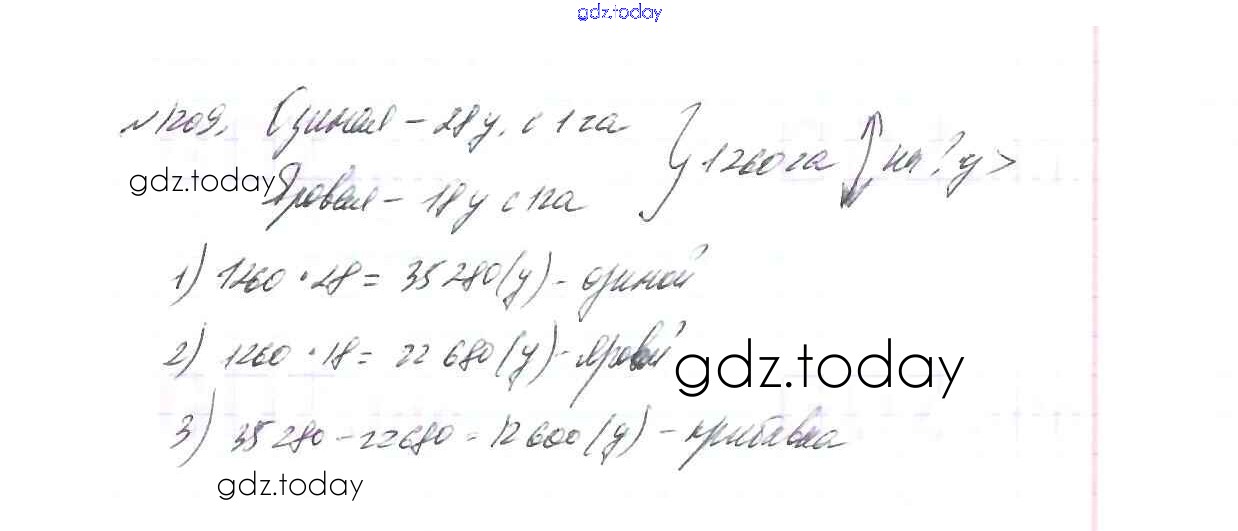 gdz.today
№1209. Озимая – 28 ц. с 1 га
} 1260 га на ? ц >
gdz.today
Яровая – 18 ц с 1 га
1) 1260 · 28 = 35 280 (ц) – озимой
2) 1260 · 18 = 22 680 (ц) – яровой
gdz.today
3) 35 280 – 22 680 = 12 600 (ц) – прибавка
gdz.today